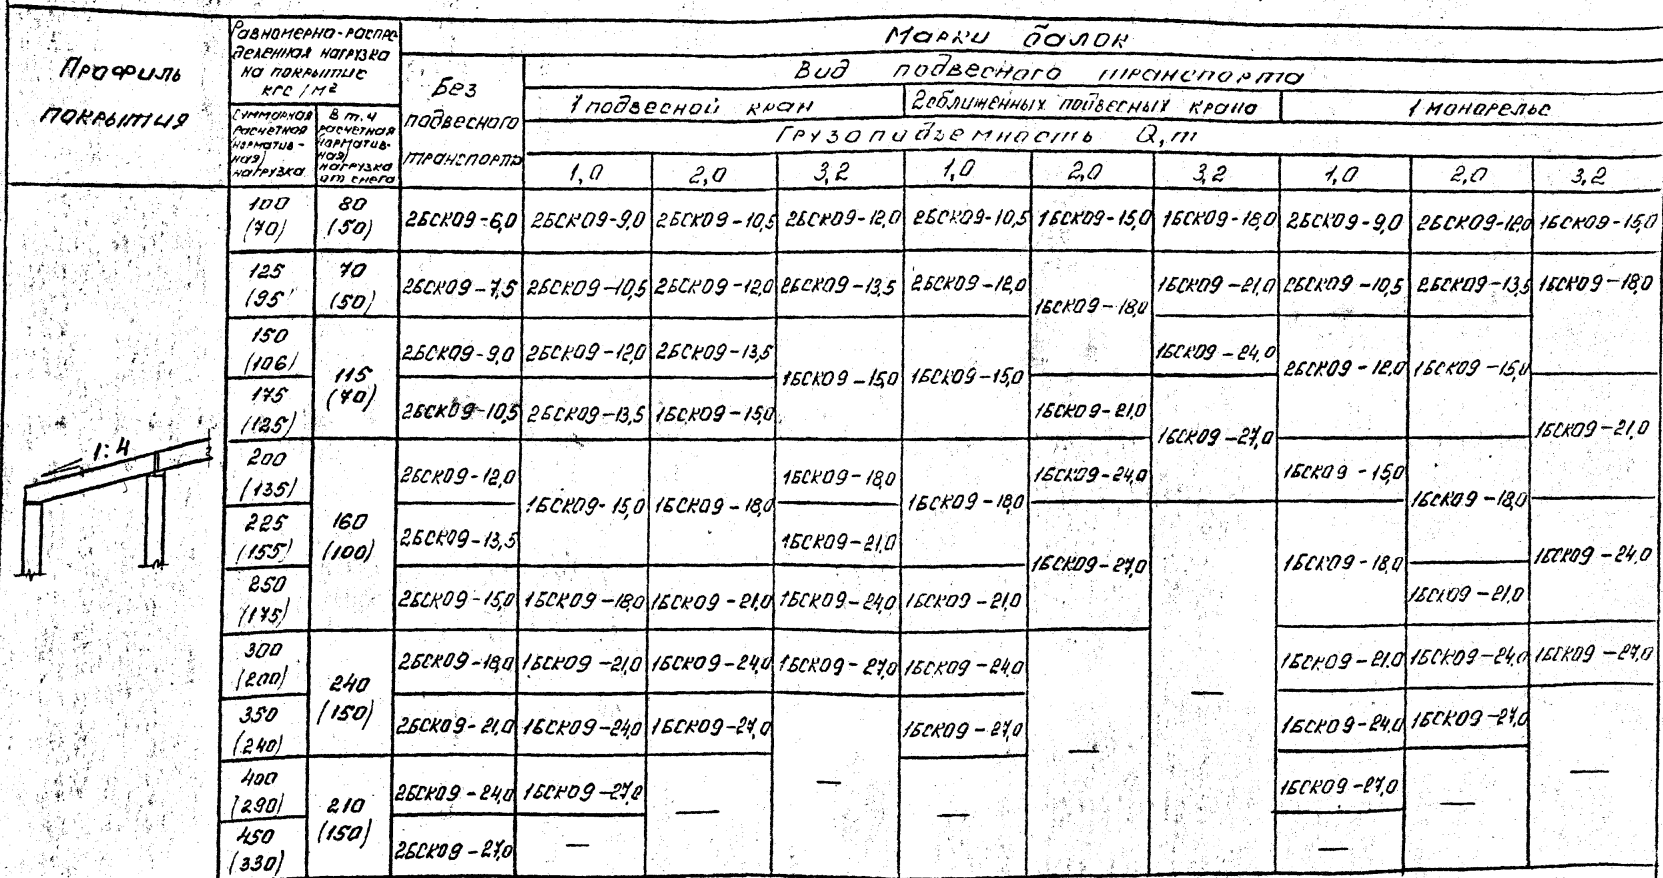 Профиль
покрытия
Равномерно-распре-
деленная нагрузка
на покрытие
кгс/м²
Суммарная
расчетная
(норматив-
ная)
нагрузка
в т.ч
расчетная
(норматив-
ная)
нагрузка
от снега
Марки балок
Без
подвесного
транспорта
Вид подвесного транспорта
1 подвесной кран
2 сближенных подвесных крана
1 монорельс
Грузоподъемность Q, т
1,0 2,0 3,2 1,0 2,0 3,2 1,0 2,0 3,2
1:4
100 80
(70) (50)
2БСК09-6,0 2БСК09-9,0 2БСК09-10,5 2БСК09-12,0 2БСК09-10,5 1БСК09-15,0 1БСК09-18,0 2БСК09-9,0 2БСК09-12,0 1БСК09-15,0
125 70
(95) (50)
2БСК09-7,5 2БСК09-10,5 2БСК09-12,0 2БСК09-13,5 2БСК09-12,0 1БСК09-18,0 1БСК09-21,0 2БСК09-10,5 2БСК09-13,5 1БСК09-18,0
150
(106)
115
(70)
2БСК09-9,0 2БСК09-12,0 2БСК09-13,5 1БСК09-15,0 1БСК09-15,0 1БСК09-24,0 2БСК09-12,0 1БСК09-15,0
175
(125)
2БСК09-10,5 2БСК09-13,5 1БСК09-15,0 1БСК09-21,0 1БСК09-27,0 1БСК09-21,0
200
(135)
2БСК09-12,0 1БСК09-15,0 1БСК09-18,0 1БСК09-18,0 1БСК09-18,0 1БСК09-24,0 1БСК09-15,0 1БСК09-18,0
225
(155)
160
(100)
2БСК09-13,5 1БСК09-21,0 1БСК09-27,0 1БСК09-18,0 1БСК09-24,0
250
(175)
2БСК09-15,0 1БСК09-18,0 1БСК09-21,0 1БСК09-24,0 1БСК09-21,0 1БСК09-21,0
300
(200)
240
(150)
2БСК09-18,0 1БСК09-21,0 1БСК09-24,0 1БСК09-27,0 1БСК09-24,0 — 1БСК09-21,0 1БСК09-24,0 1БСК09-27,0
350
(240)
2БСК09-21,0 1БСК09-24,0 1БСК09-27,0 — 1БСК09-27,0 — 1БСК09-24,0 1БСК09-27,0 —
400
(290)
210
(150)
2БСК09-24,0 1БСК09-27,0 — — 1БСК09-27,0 —
450
(330)
2БСК09-27,0 — —